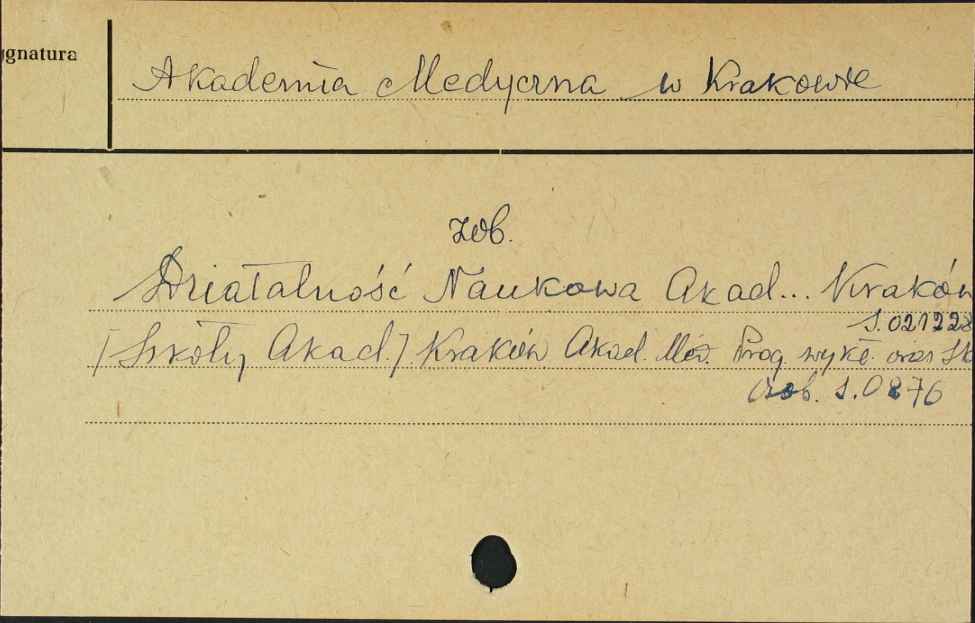 ygnatura
Akademia Medyczna w Krakowie
zob.
Działalność Naukowa Akad... Kraków
S.021228
[Szkoły Akad.] Kraków Akad. Med. Prog. wykł. oraz Sk
osob. S.0876